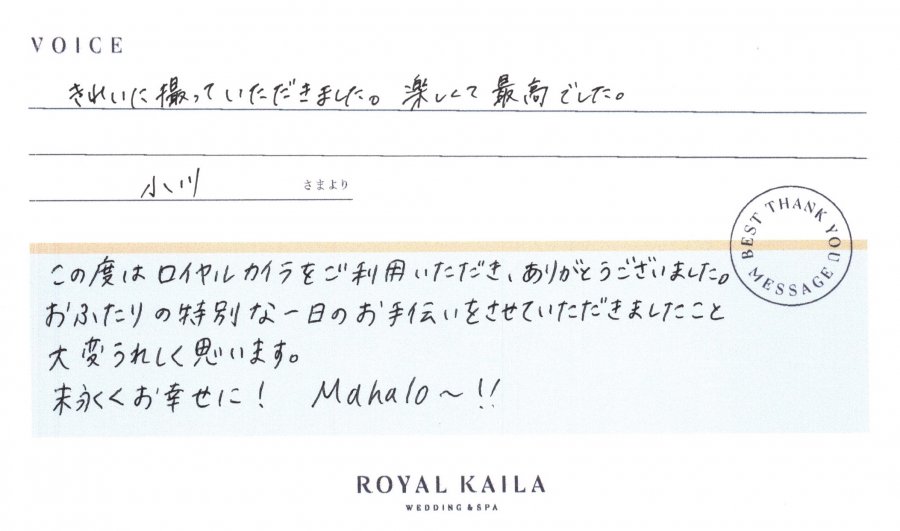 VOICE
きれいに撮っていただきました。楽しくて最高でした。
小川 さまより
BEST THANK YOU MESSAGE
この度はロイヤルカイラをご利用いただき、ありがとうございました。
おふたりの特別な一日のお手伝いをさせていただきましたこと
大変うれしく思います。
末永くお幸せに! Mahalo~!!
ROYAL KAILA
WEDDING & SPA